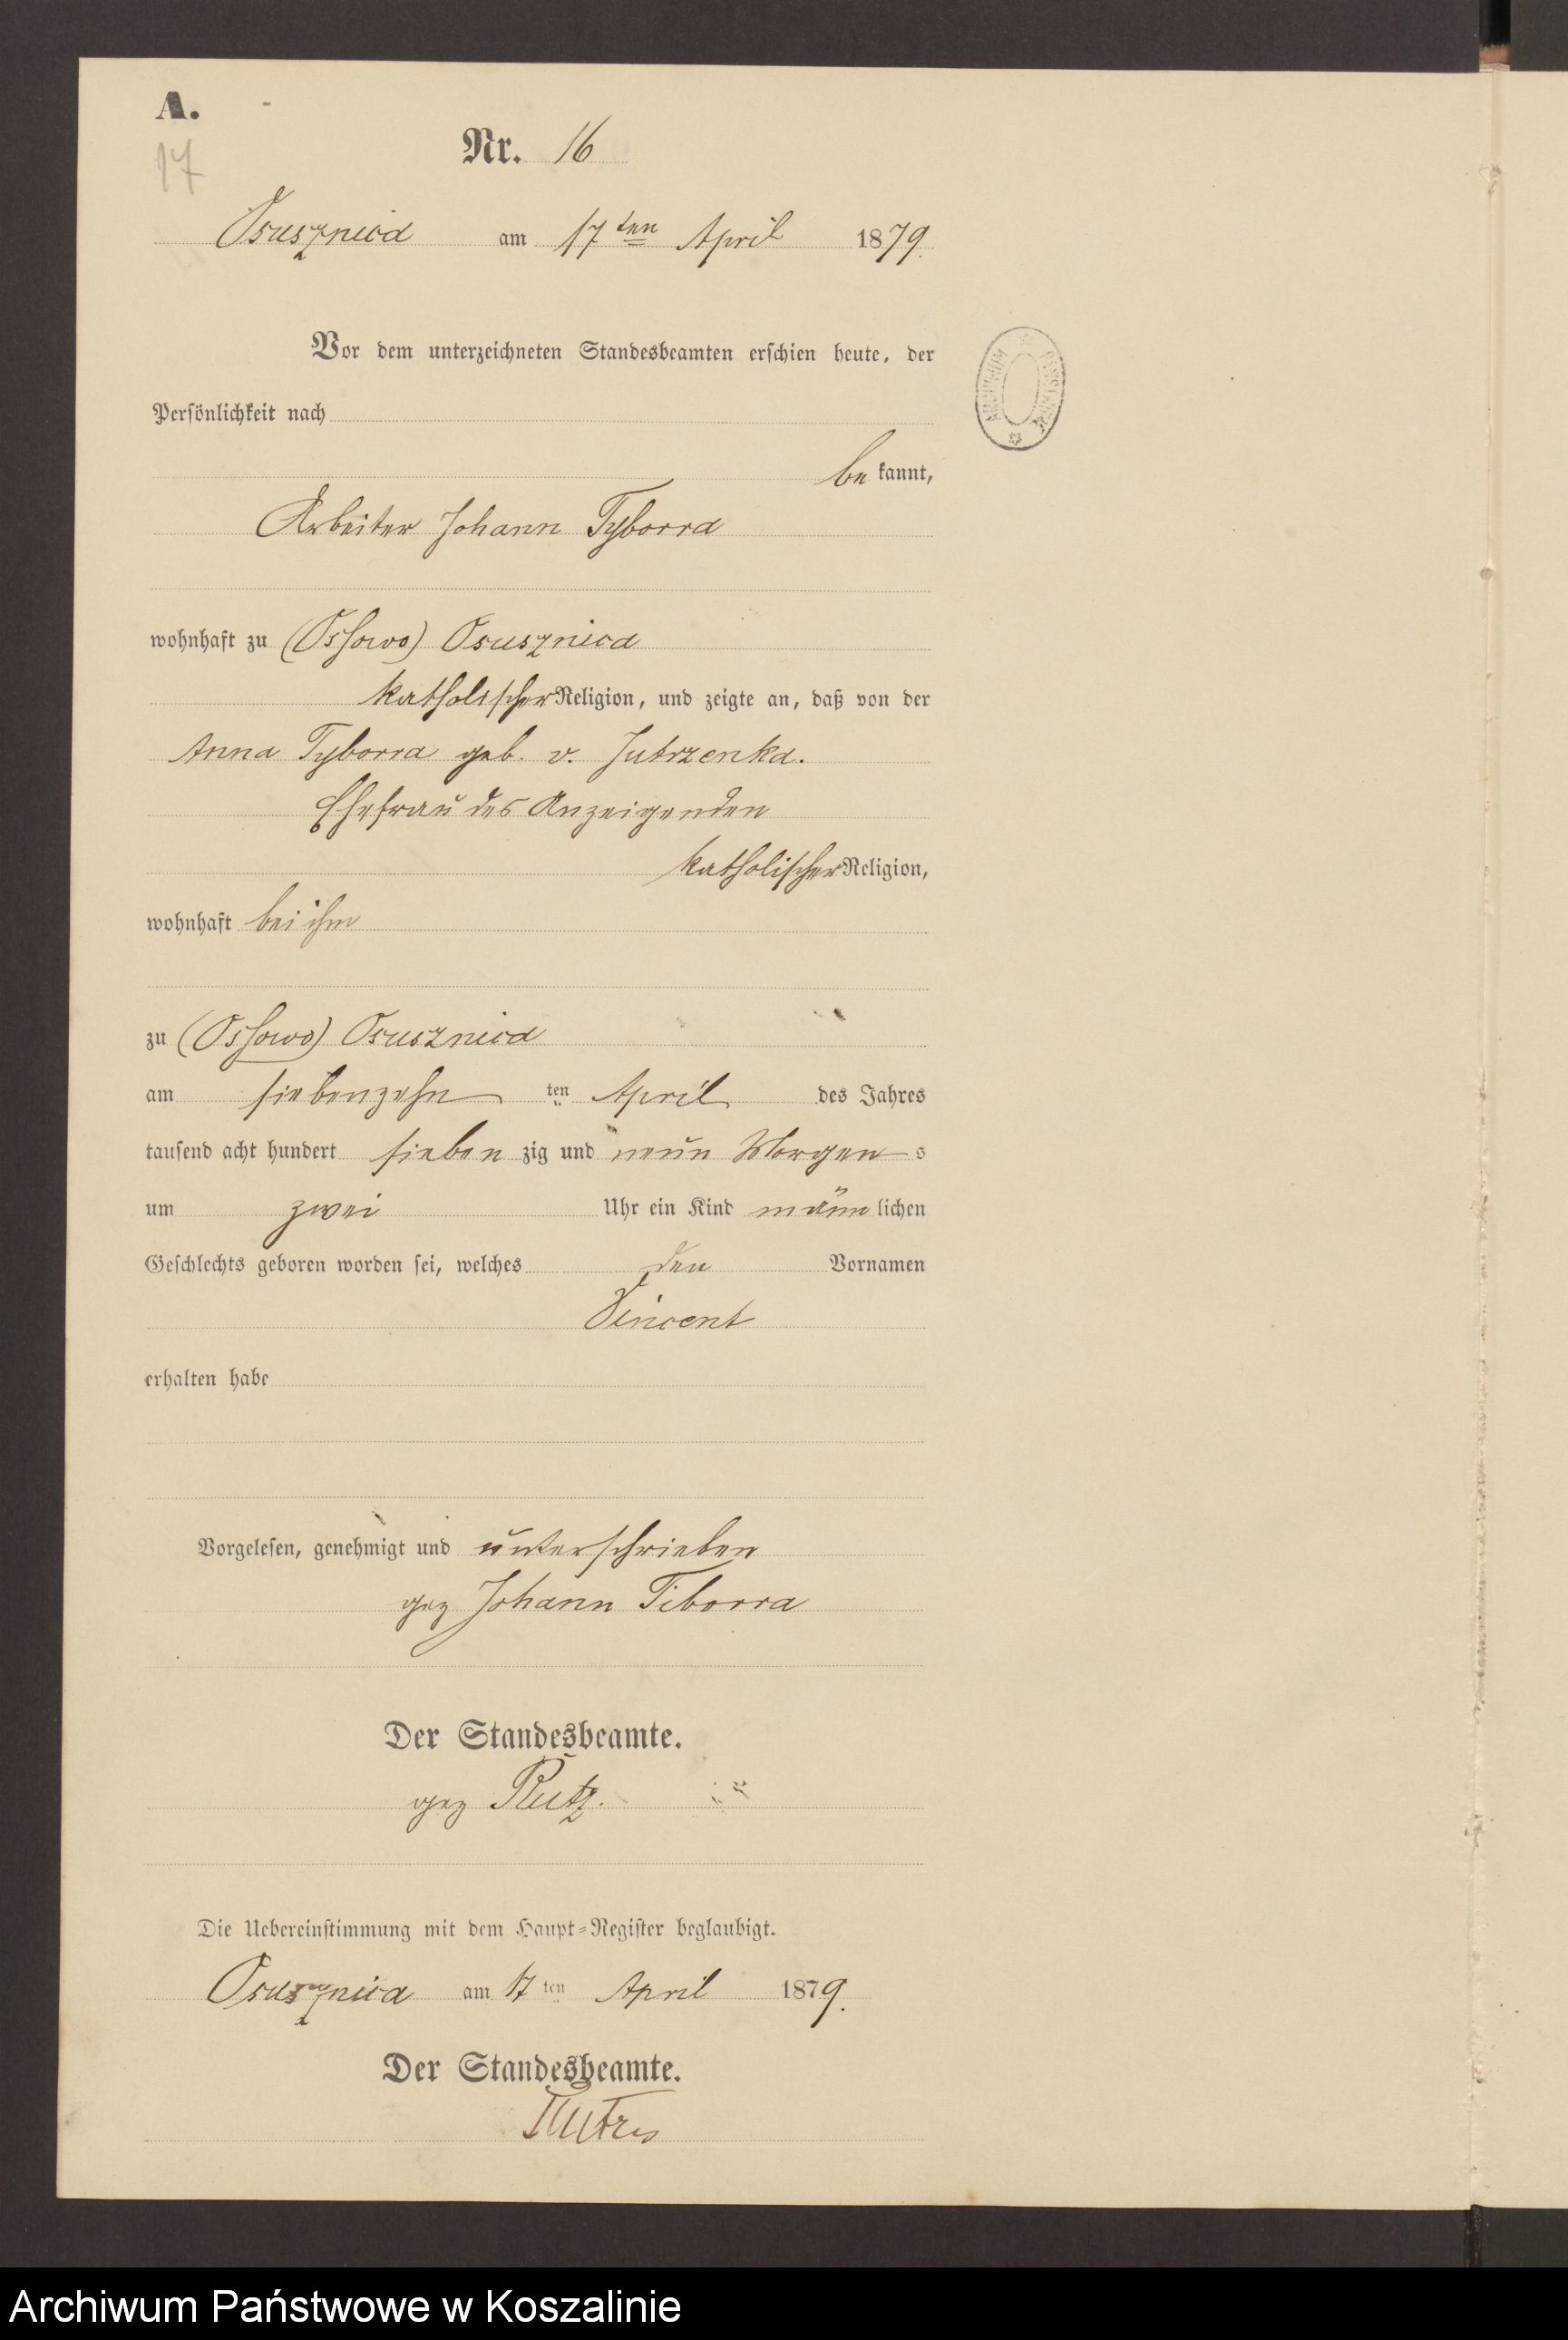 A.
17
Nr. 16
Osusznica am 17ten April 1879.
Vor dem unterzeichneten Standesbeamten erschien heute, der
Persönlichkeit nach
be kannt,
Arbeiter Johann Tyborra
wohnhaft zu (Ossowo) Osusznica
katholischer Religion, und zeigte an, daß von der
Anna Tyborra geb. v. Jutrzenka.
Ehefrau des Anzeigenden
katholischer Religion,
wohnhaft bei ihm
zu (Ossowo) Osusznica
am siebenzehn ten April des Jahres
tausend acht hundert sieben zig und neun Morgens
um zwei Uhr ein Kind männlichen
Geschlechts geboren worden sei, welches den Vornamen
Vincent
erhalten habe
Vorgelesen, genehmigt und unterschrieben
gez Johann Tiborra
Der Standesbeamte.
gez
Die Uebereinstimmung mit dem Haupt-Register beglaubigt.
Osusznica am 17ten April 1879.
Der Standesbeamte.
Archiwum Państwowe w Koszalinie